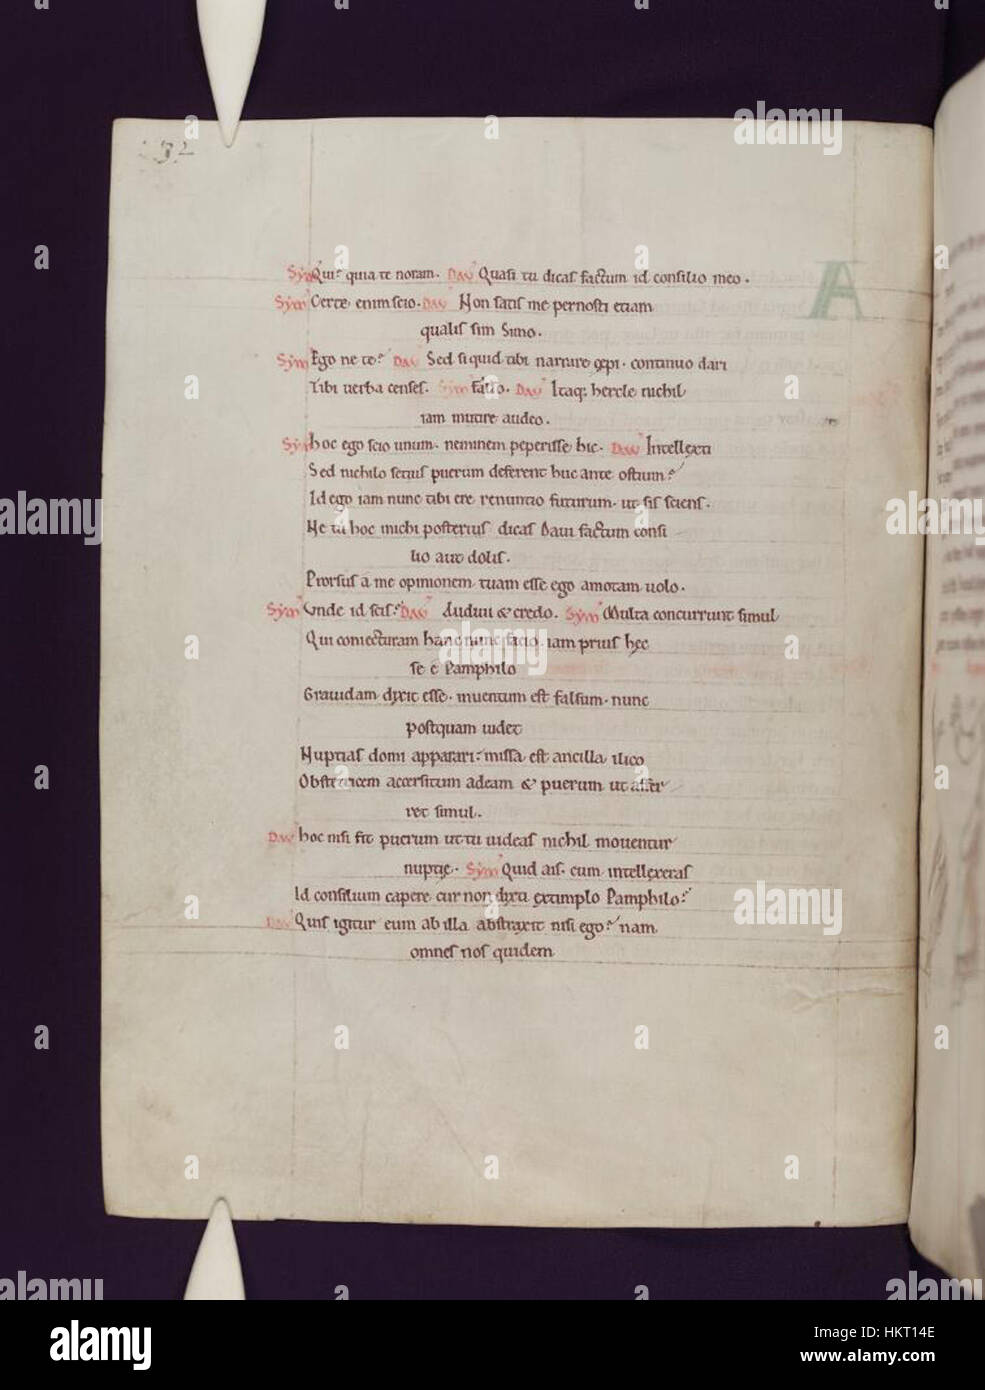 Sym Qui? quia te noram. Dav Quasi tu dicas factum id consilio meo.
Sym Certe enim scio. Dav Non satis me pernosti etiam
qualis sim Simo.
Sym Ego ne te? Dav Sed siquid tibi narrare cępi. continuo dari
Tibi uerba censes. Sym falso. Dav Itaq; hercle nichil
iam mutire audeo.
Sym hoc ego scio unum. neminem peperisse hic. Dav Intellexti
Sed nichilo setius puerum deferent huc ante ostium?
Id ego iam nunc tibi ere renuntio futurum. ut sis sciens.
Ne tu hoc michi posterius dicas Daui factum consi
lio aut dolis.
Prorsus a me opinionem tuam esse ego amotam uolo.
Sym Unde id scis? Dav Audiui & credo. Sym Multa concurrunt simul
Qui coniecturam hanc nunc facio. iam prius hęc
se e Pamphilo
Grauidam dixit esse. inuentum est falsum. nunc
postquam uidet
Nuptias domi apparari. missa est ancilla ilico
Obstetricem accersitum adeam & puerum ut affer
ret simul.
Dav hoc nisi fit puerum ut tu uideas nichil mouentur
nuptię. Sym Quid ais. cum intellexeras
Id consilium capere cur non dixti extimplo Pamphilo?
Dav Quis igitur eum ab illa abstraxit nisi ego? nam
omnes nos quidem
alamy
HKT14E
www.alamy.com